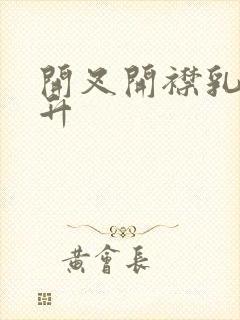 開叉開襟乳
廾
黃會長